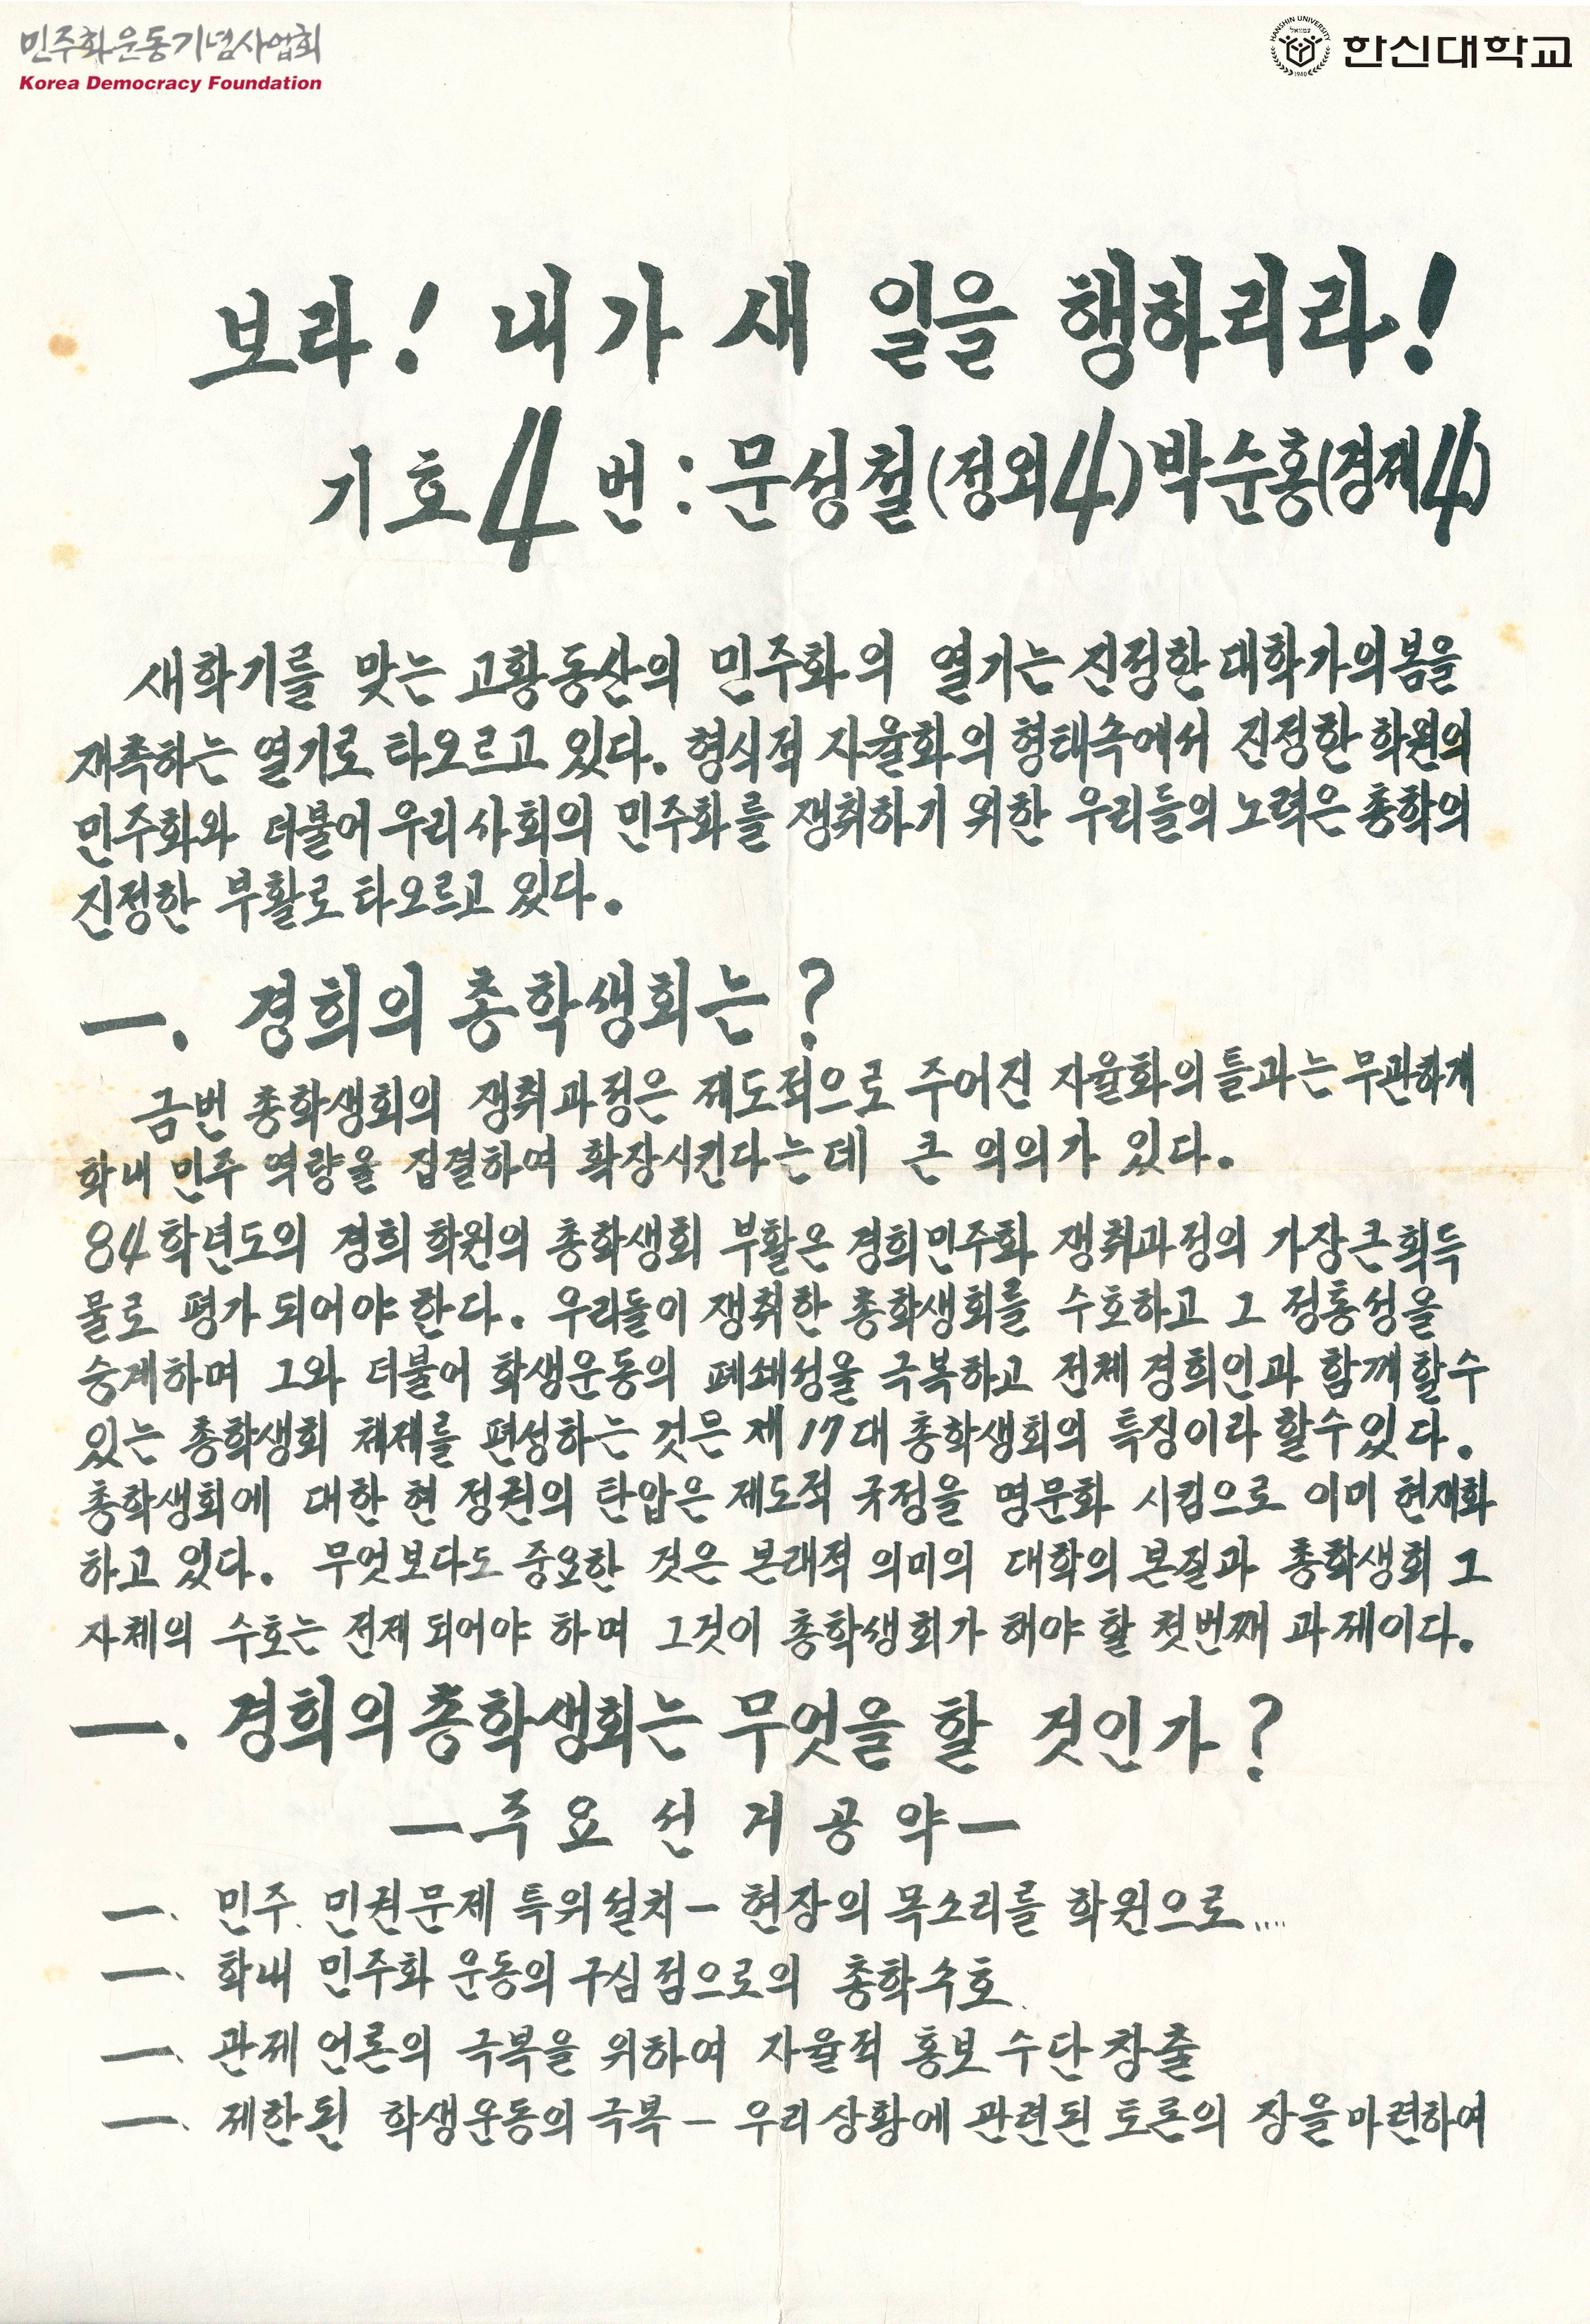 민주화운동기념사업회
Korea Democracy Foundation
HANSHIN UNIVERSITY
1940
한신대학교
보라! 내가 새 일을 행하리라!
기호 4 번 : 문성철(정외4) 박순홍(경제4)
새학기를 맞는 고황동산의 민주화의 열기는 진정한 대학가의 봄을
재촉하는 열기로 타오르고 있다. 형식적 자율화의 형태속에서 진정한 학원의
민주화와 더불어 우리사회의 민주화를 쟁취하기 위한 우리들의 노력은 총학의
진정한 부활로 타오르고 있다.
一. 경희의 총학생회는?
금번 총학생회의 쟁취과정은 제도적으로 주어진 자율화의 틀과는 무관하게
학내 민주 역량을 집결하여 확장시킨다는데 큰 의의가 있다.
84학년도의 경희학원의 총학생회 부활은 경희민주화 쟁취과정의 가장큰획득
물로 평가 되어야 한다. 우리들이 쟁취한 총학생회를 수호하고 그 정통성을
승계하며 그와 더불어 학생운동의 폐쇄성을 극복하고 전체 경희인과 함께할수
있는 총학생회 체제를 편성하는 것은 제 17대 총학생회의 특징이라 할수있다.
총학생회에 대한 현 정권의 탄압은 제도적 규정을 명문화 시킴으로 이미 현재화
하고 있다. 무엇보다도 중요한 것은 본래적 의미의 대학의 본질과 총학생회 그
자체의 수호는 전제 되어야 하며 그것이 총학생회가 해야 할 첫번째 과제이다.
一. 경희의 총학생회는 무엇을 할 것인가?
— 주요 선거공약 —
一. 민주. 민권문제 특위설치 - 현장의 목소리를 학원으로....
一. 학내 민주화 운동의 구심점으로의 총학수호.
一. 관제 언론의 극복을 위하여 자율적 홍보 수단 창출
一. 제한된 학생운동의 극복 - 우리상황에 관련된 토론의 장을 마련하여